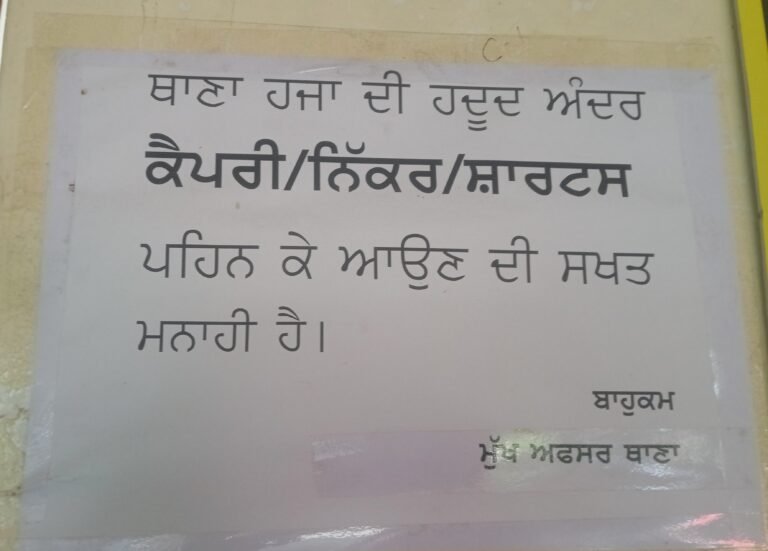 ਥਾਣਾ ਹਜਾ ਦੀ ਹਦੂਦ ਅੰਦਰ
ਕੈਪਰੀ/ਨਿੱਕਰ/ਸ਼ਾਰਟਸ
ਪਹਿਨ ਕੇ ਆਉਣ ਦੀ ਸਖਤ
ਮਨਾਹੀ ਹੈ।
ਬਾਹੁਕਮ
ਮੁੱਖ ਅਫਸਰ ਥਾਣਾ